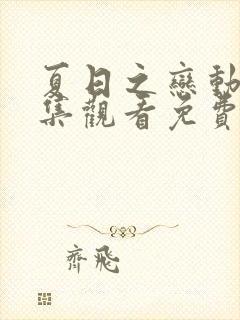 夏日之戀動
集觀看免費
齊飛